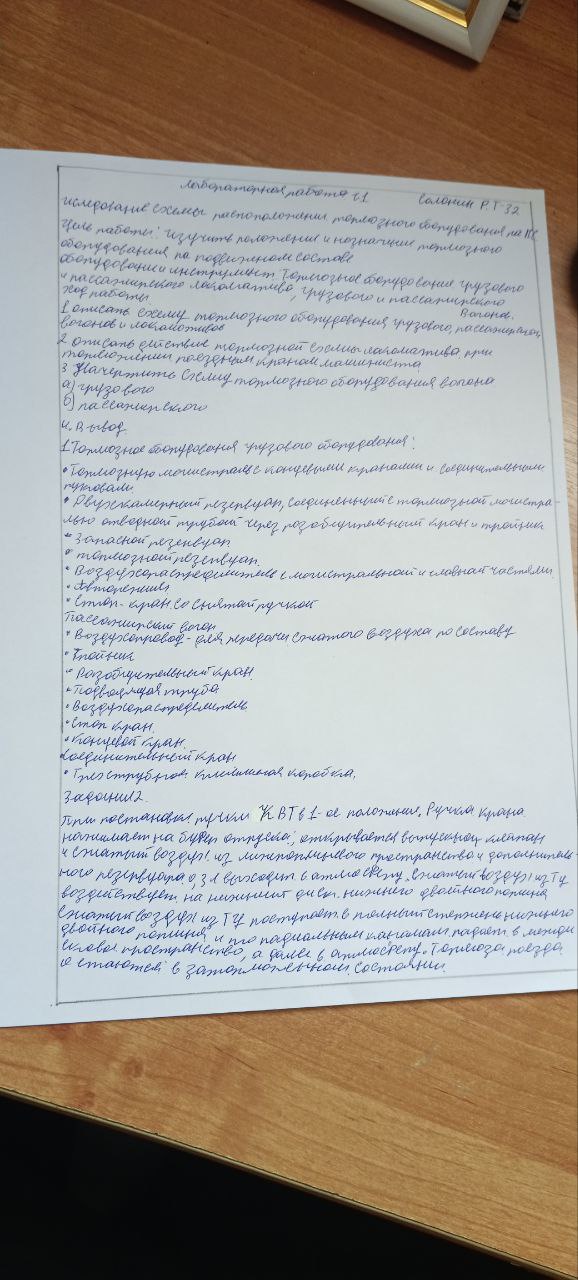 Лабораторная работа №1 Солонин Р. Т-32
исследование схемы расположения тормозного оборудования на ПС
Цель работы: Изучить положения и назначение тормозного
оборудования на подвижном составе
оборудование и инструмент: Тормозное оборудования грузового
и пассажирского локоматива, грузового и пассажирского
Вагонов.
ход работы.
1 описать схему тормозного оборудования грузового, пассажирского
вогонов и локомотивов
2 описать действие тормозной схемы локоматива при
торможении поездным краном машиниста
3 Начертить схему тормозного оборудования вогона
а) грузового
б) пассажирского
4. Вывод
1 Тормозное оборудования грузового оборудования:
• Тормозную могистраль с концевыми кранами и соединительными
рукавами
• Двухкамерный резервуар, соединенный с тормозной могистра-
лью отводной трубой через розобщительный кран и тройник
• Запасной резервуар
• тормозной резервуар.
• Воздухораспределитель с могистральной и главной частями.
• Авторежим
• Стоп-кран со снятой ручкой
Пассажирский вогон
• Воздухопровод - для передачи сжатого воздуха по составу
• Тройник
• Разобщительный кран.
• Подводящая труба
• Воздухораспределитель
• Стоп кран.
• Концевой кран.
Соединительный кран
• Трехтрубная клеммная коробка.
Задание 2.
При постановке ручки КВТ в 1-ое положения. Ручка крана.
нажимает на буфер отпуска, открывается выпускной клапан
и сжатый воздух из межпоршневого пространства и дополнитель-
ного резервуара 0,3л выходит в атмосферу. Сжатый воздух из ТЦ
воздействует на нижний диск нижнего двойного поршня
Сжатый воздух из ТЦ поступает в полный стержень нижнего
двойного поршня и по радиальным каналам падает в междис
ковое пространство, а далее в атмосферу. Тормоза поезда
остаются в заторможенном состоянии.